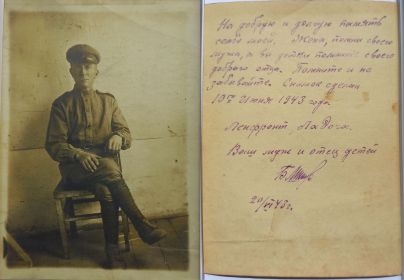 На добрую и долгую память
семье моей. Жена, помни своего
мужа, а вы детки помните своего
доброго отца. Помните и не
забывайте. Снимок сделан
19го Июня 1943 года.
Ленфронт, Ладога.
Ваш муж и отец детей
20/VI 43г.